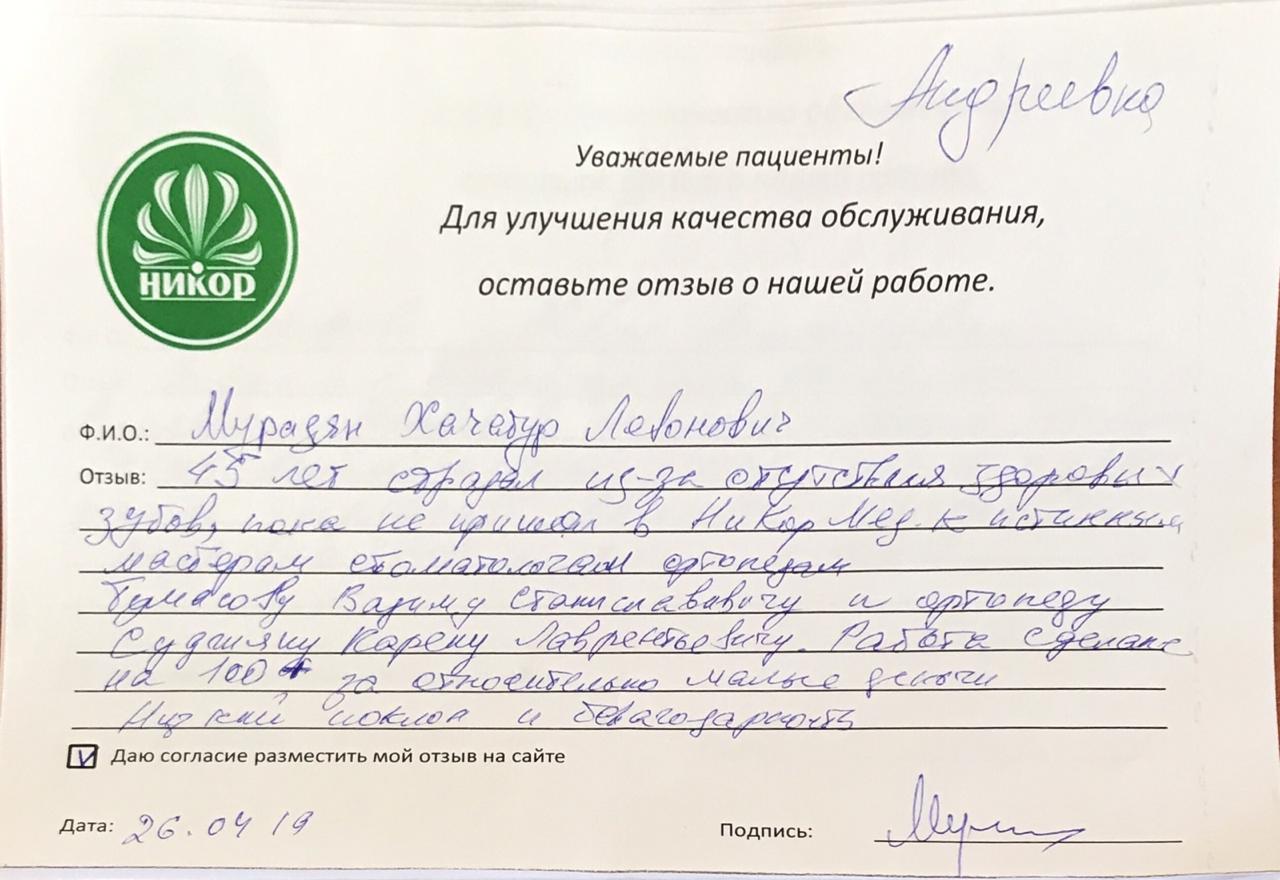 Андреевка
Уважаемые пациенты!
Для улучшения качества обслуживания,
оставьте отзыв о нашей работе.
НИКОР
Ф.И.О.: Мурадян Хачатур Левонович
Отзыв: 45 лет страдал из-за отсутствия здоровых
зубов, пока не пришел в НиКорМед к истинным
мастерам стоматологам ортопедам
Вадиму Станиславивичу и ортопеду
Карену Лаврентьевичу. Работа сделана
на 100 за относительно малые деньги
Низкий поклон и благодарность
Даю согласие разместить мой отзыв на сайте
Дата: 26.04 19
Подпись: